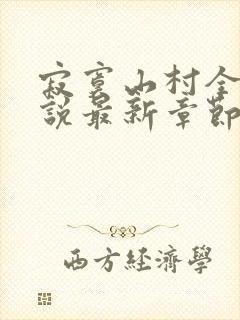 寂寞山村全
說最新章節
西方經濟學